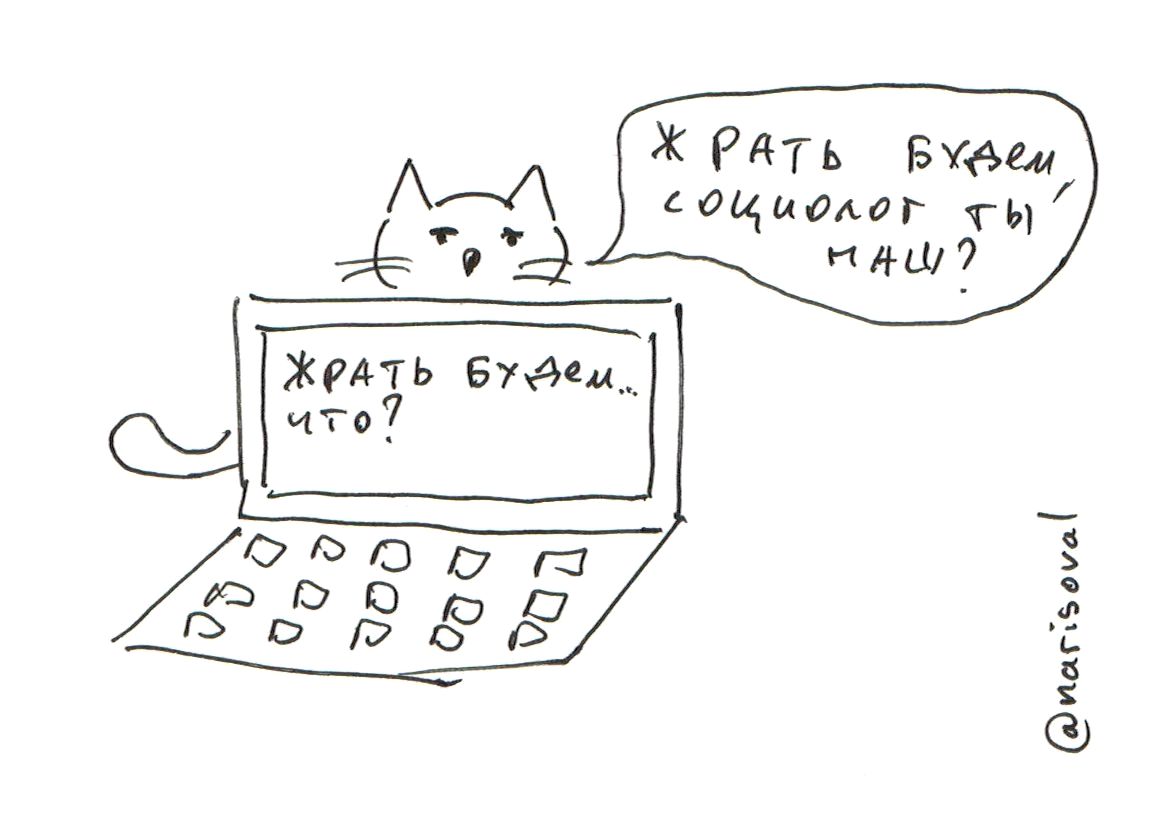 ЖРАТЬ БУДЕМ,
СОЦИОЛОГ ТЫ
НАШ?
ЖРАТЬ БУДЕМ...
ЧТО?
@narisoval